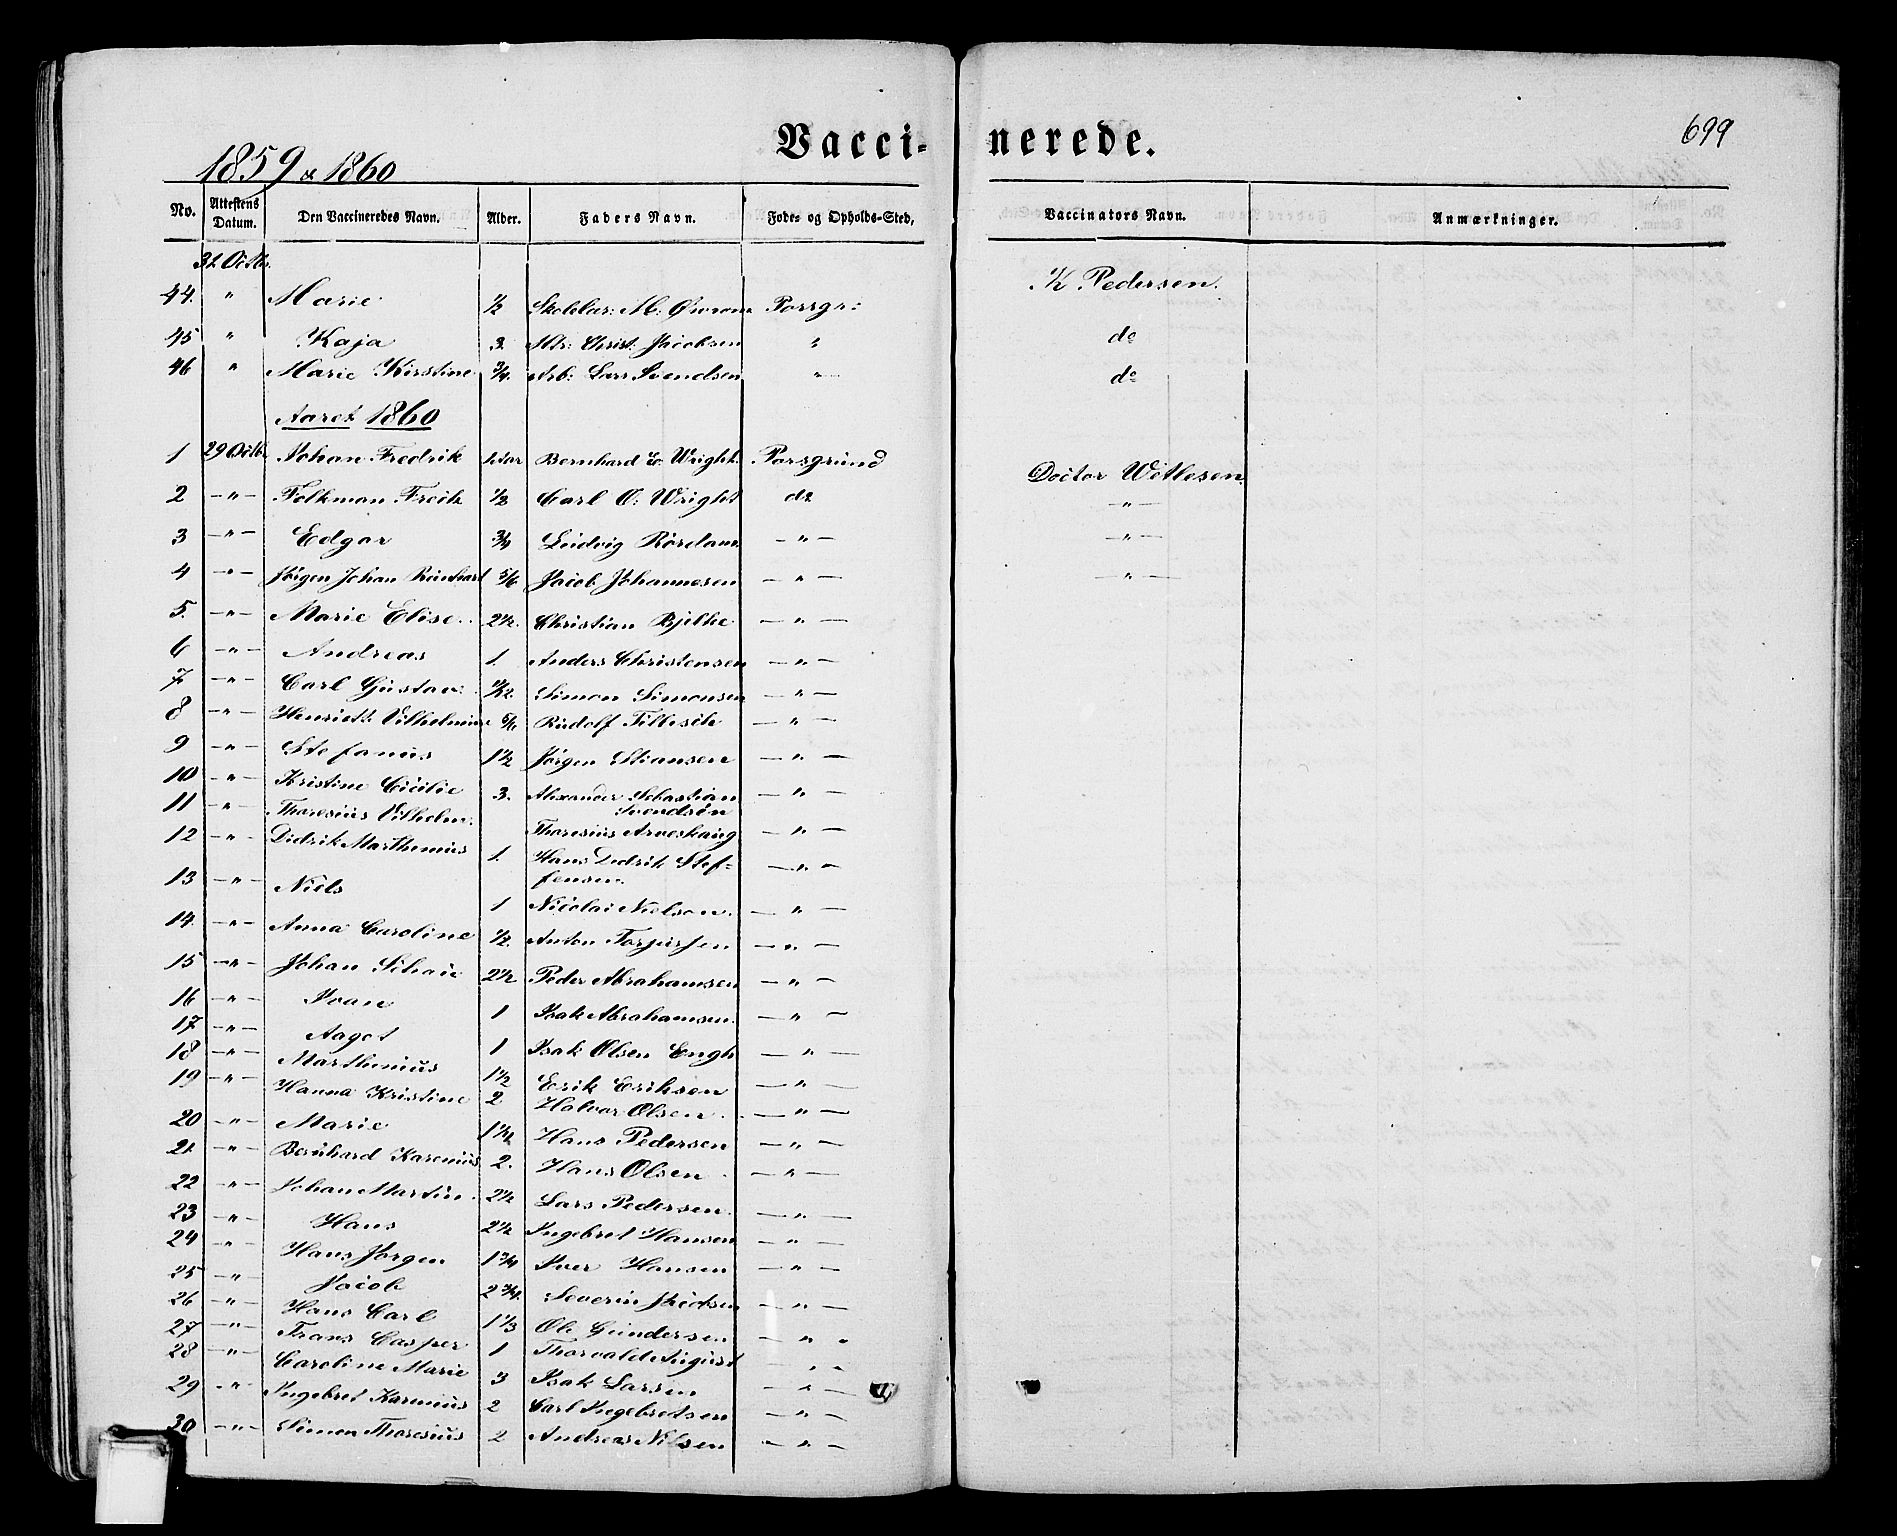 Vacci- nerede.
699
1859 & 1860
No. Attestens Datum. Den Vaccineredes Navn. Alder. Faders Navn. Føde- og Opholds-Sted, Vaccinators Navn. Anmærkninger.
31 Octbr.
44. " Marie 1/2 Skolelær: M: Porsgr: K Pedersen.
45 " Kaja 3. Mr: Christ: Jacobsen " do
46 " Marie Kirstine 3/4. Arb: Lars Svendsen " do
Aaret 1860
1 29 Octbr Johan Fredrik 1 Aar Bernhard C. Wright. Porsgrund Doctor Wetlesen.
2 —"— Folkman Fredk 1/2 Carl O: Wright do —"—
3 —"— Edgar 3/4 Ludvig Rördam —"— —"—
4 —"— Jörgen Johan Reinhart 5/6 Jacob Johannesen —"— —"—
5. —"— Marie Elise 2 1/2. Christian Bjelke —"—
6 —"— Andreas 1. Anders Christensen —"—
7 —"— Carl Gustav: 11/12. Simon Simonsen —"—
8 —"— Henriette Vilhelmine 5/6 Rudolf Tillesch —"—
9 —"— Stefanus 1 1/2 Jörgen Stiansen —"—
10 —"— Kristine Cicilie 3. Alexander Sebastian —"—
Svendsen
11 —"— Tharesius Vilhelm. Tharesius Arveskaug —"—
12 —"— Didrik Marthinius 1. Hans Didrik Stef- —"—
fensen.
13 —"— Niels 1 Nicolai Nielsen. —"—
14. —"— Anna Caroline 1/2. Anton Torjussen —"—
15 —"— Johan 2 1/2 Peder Abrahamsen —"—
16 —"— Ivan 1 Isak Abrahamsen. —"—
17 —"— Aagot 1 Isak Olsen Engh —"—
18 —"— Marthinius 1 1/2 Erik Eriksen —"—
19 —"— Hanna Kristine 2 Halvor Olsen. —"—
20 —"— Marie 1 1/2 Hans Pedersen —"—
21. —"— Bernhard Karenius 2. Hans Olsen —"—
22 —"— Johan Martin. 2 1/2 Lars Pedersen. —"—
23 —"— Hans 2 1/2 Ingebret Hansen —"—
24 —"— Hans Jørgen 1 3/4 Iver Hansen —"—
25 —"— Jacob 2 3/4. Severin —"—
26 —"— Hans Carl 1 1/3 Ole Gundersen —"—
27 —"— Frans Casper 1 Thorvald August —"—
28 —"— Caroline Marie 3 Isak Larsen —"—
29 —"— Ingebret Karenius 2 Carl Ingebretsen —"—
30 —"— Simon Tharesius 2 Andreas Nilsen —"—